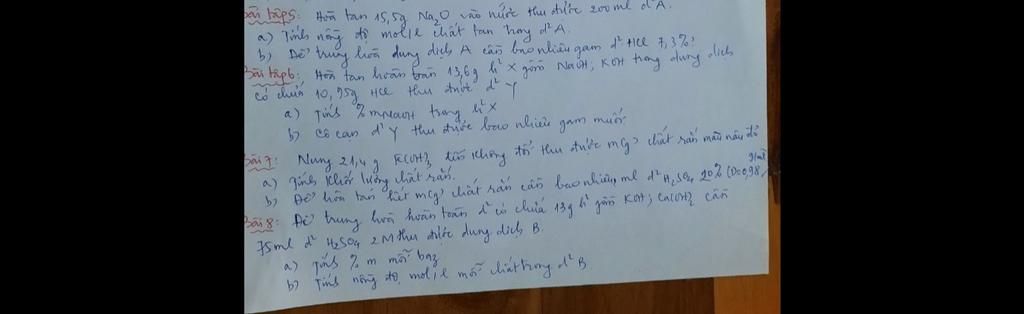 Bài tập 5: Hòa tan 15,5g Na₂O vào nước thu được 200ml d² A.
a) Tính nồng độ mol/l chất tan trong d² A.
b) Để trung hoà dung dịch A cần bao nhiêu gam d² HCl 7,3%?
Bài tập 6: Hòa tan hoàn toàn 13,6g h² X gồm NaOH, KOH trong dung dịch
có chứa 10,95g HCl thu được d² Y
a) Tính % mNaOH trong h² X
b) Cô cạn d² Y thu được bao nhiêu gam muối
Bài 7: Nung 21,4 g Fe(OH)₃ đến không đổi thu được m(g) chất rắn màu nâu đỏ
a) Tính khối lượng chất rắn.
b) Để hòa tan hết m(g) chất rắn cần bao nhiêu ml d² H₂SO₄ 20% (D=0,98 g/ml)
Bài 8: Để trung hoà hoàn toàn d² có chứa 13g h² gồm KOH; Ca(OH)₂ cần
75ml d² H₂SO₄ 2M thu được dung dịch B.
a) Tính % m mỗi baz
b) Tính nồng độ mol/l mỗi chất trong d² B